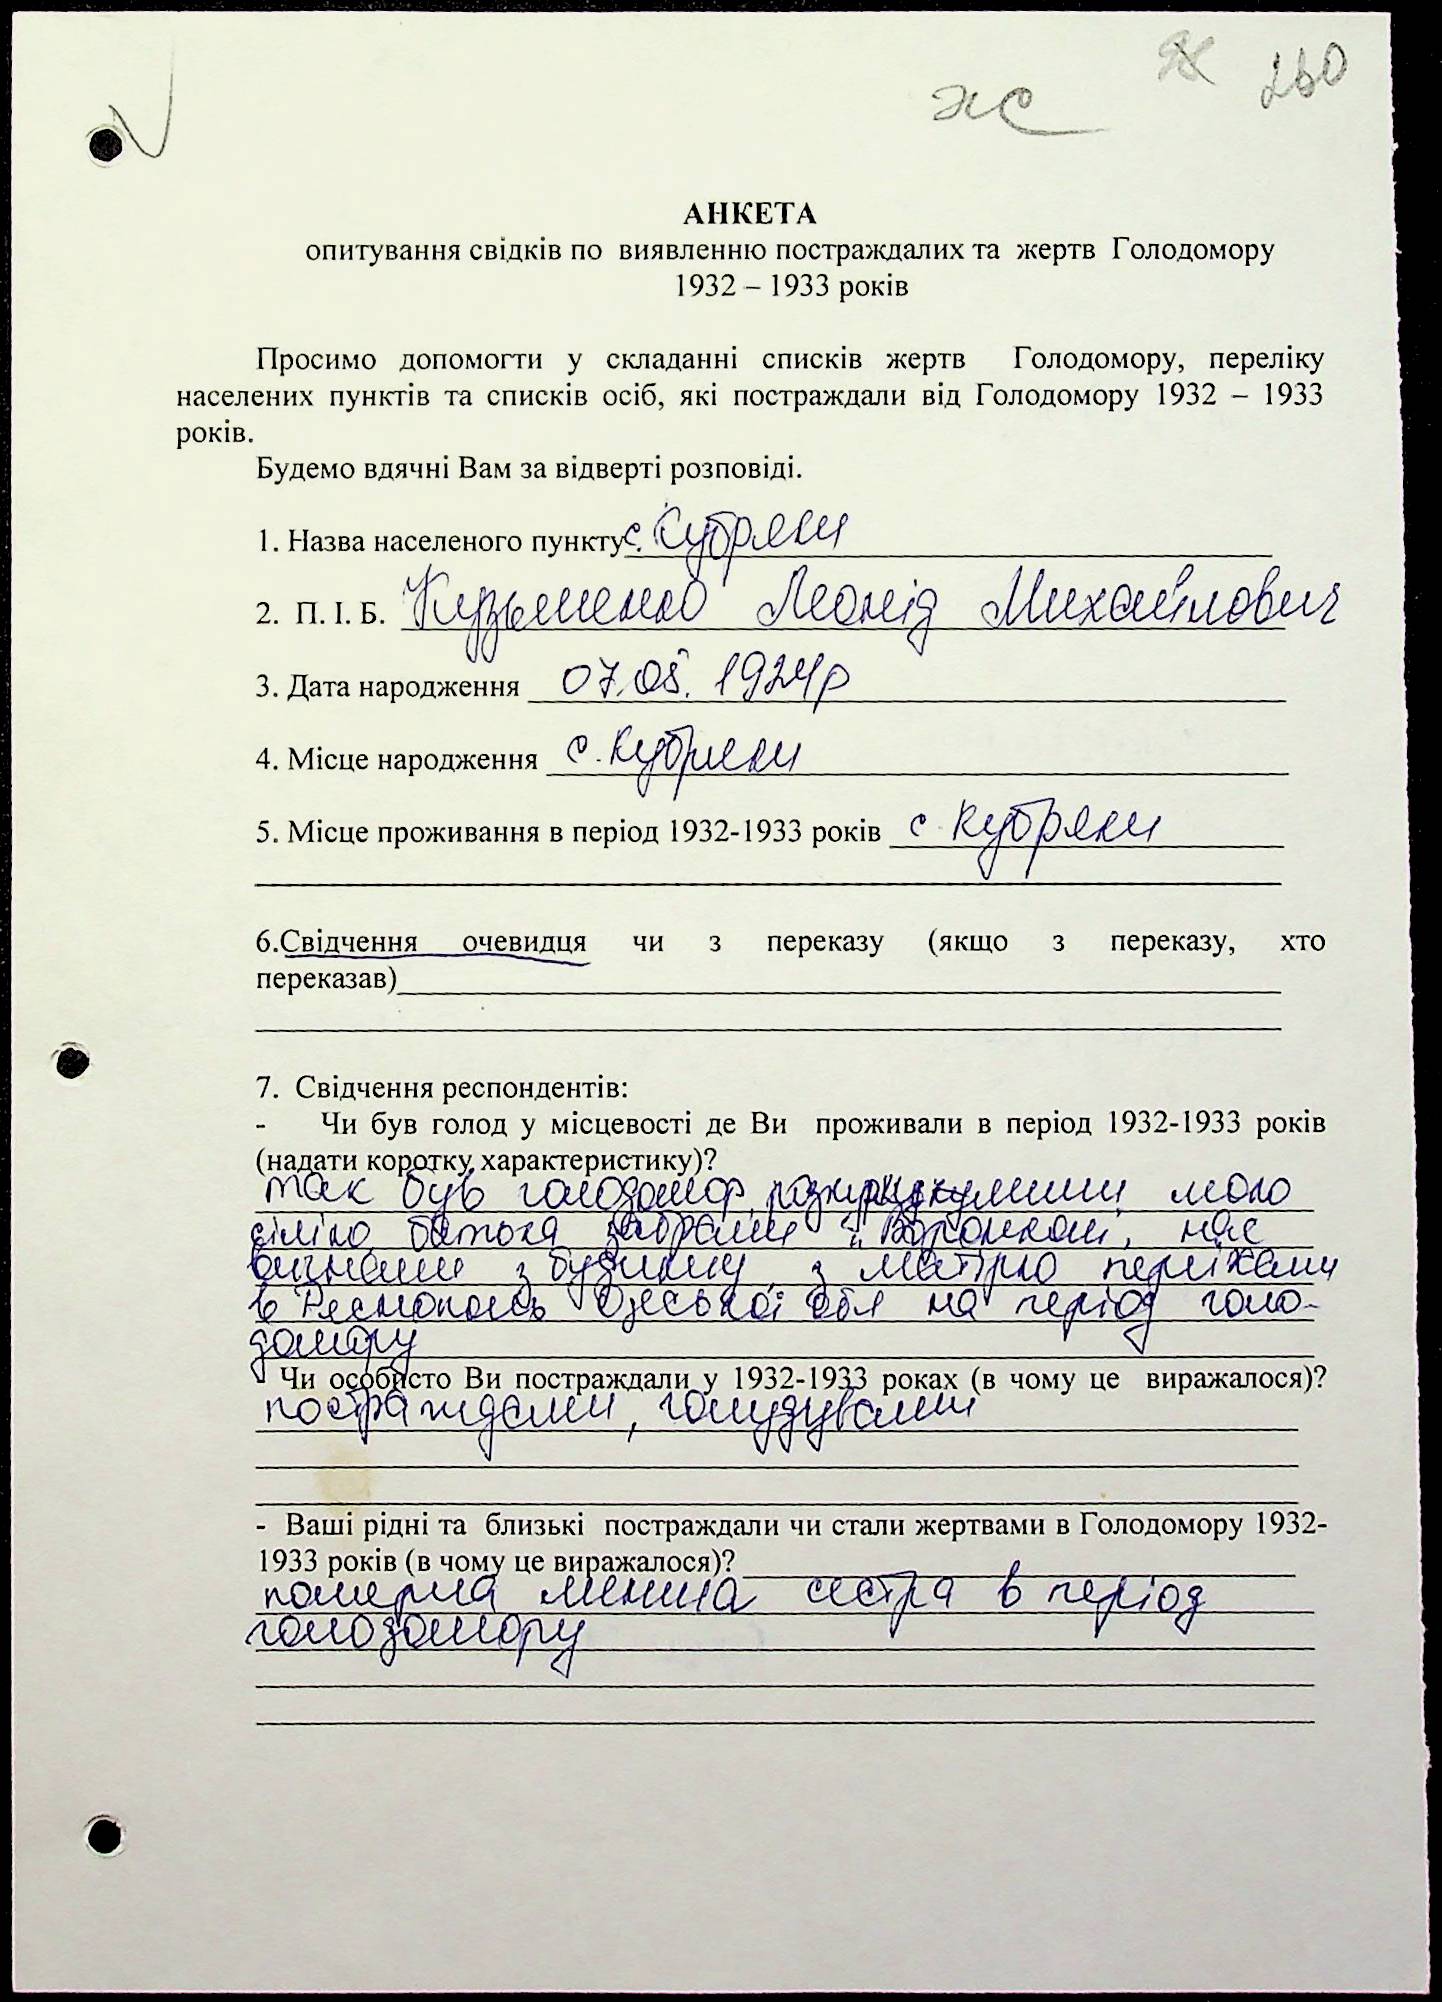 260
АНКЕТА
опитування свідків по виявленню постраждалих та жертв Голодомору
1932 – 1933 років
Просимо допомогти у складанні списків жертв Голодомору, переліку
населених пунктів та списків осіб, які постраждали від Голодомору 1932 – 1933
років.
Будемо вдячні Вам за відверті розповіді.
1. Назва населеного пункту с. Кубряки
2. П. І. Б. Кузьменко Леонід Михайлович
3. Дата народження 07.05. 1924р
4. Місце народження с. Кубряки
5. Місце проживання в період 1932-1933 років с. Кубряки
6.Свідчення очевидця чи з переказу (якщо з переказу, хто
переказав)
7. Свідчення респондентів:
- Чи був голод у місцевості де Ви проживали в період 1932-1933 років
(надати коротку характеристику)?
так був голодомор, розкуркулили мою
батька забрали нас
вигнали з будинку, з матірю переїхали
в Одеської обл на період голо-
домору
- Чи особисто Ви постраждали у 1932-1933 роках (в чому це виражалося)?
постраждали, голудували
- Ваші рідні та близькі постраждали чи стали жертвами в Голодомору 1932-
1933 років (в чому це виражалося)?
померла менша сестра в період
голодомору